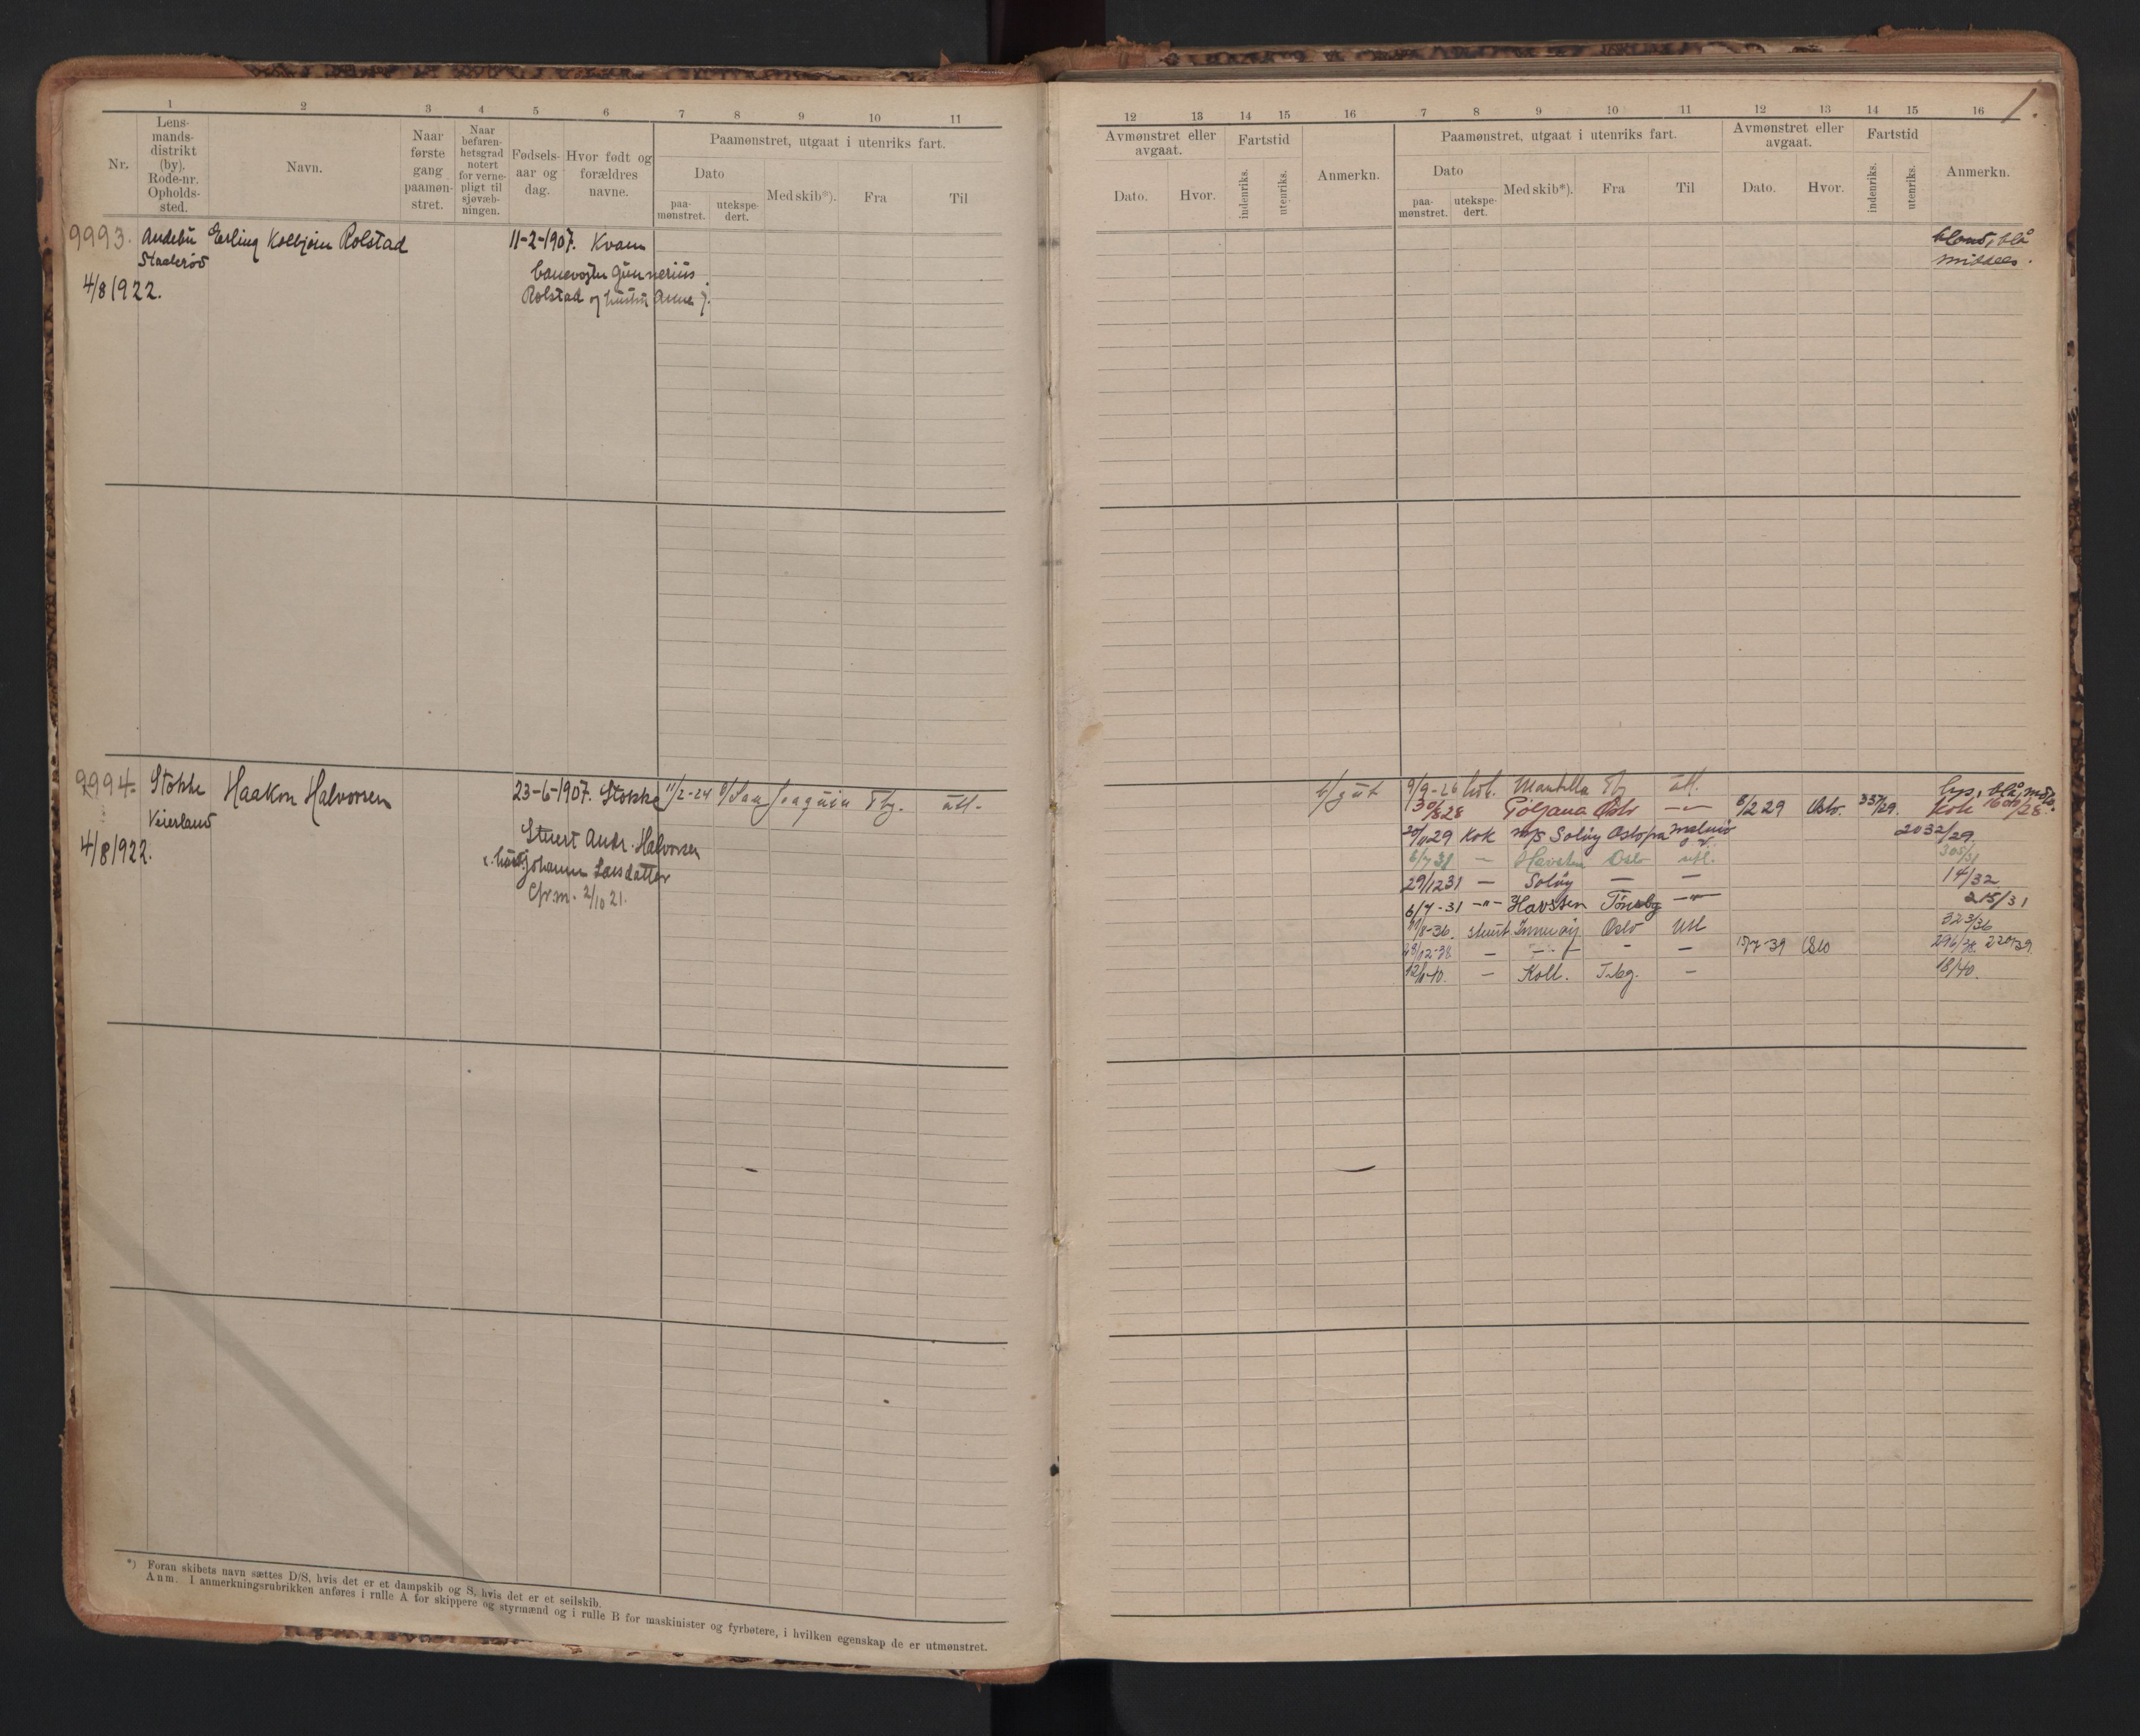 1.
1 2 3 4 5 6 7 8 9 10 11
Nr.
Lens-
mands-
distrikt
(by).
Rode-nr.
Opholds-
sted.
Navn.
Naar
første
gang
paamøn-
stret.
Naar
befaren-
hetsgrad
notert
for verne-
pligt til
sjøvæb-
ningen.
Fødsels-
aar og
dag.
Hvor født og
forældres
navne.
Paamønstret, utgaat i utenriks fart.
Dato
paa-
mønstret.
utekspe-
dert.
Med skib*).
Fra
Til
9993. Andebu Erling Kolbjørn Rolstad 11-2-1907. Kvam
Staalerød
banevogter Gunnerius
4/8 1922. Rolstad og hustru Anne J.
9994. Stokke Haakon Halvorsen 23-6-1907. Stokke 11/2-24 San Joaquin Tbg. utl.
Veierland
Stuert Andr. Halvorsen
4/8 1922. Johanne Larsdatter
2/10 21.
*) Foran skibets navn sættes D/S, hvis det er et dampskib og S, hvis det er et seilskib.
Anm. I anmerkningsrubrikken anføres i rulle A for skippere og styrmænd og i rulle B for maskinister og fyrbøtere, i hvilken egenskap de er utmønstret.
12 13 14 15 16 7 8 9 10 11 12 13 14 15 16
Avmønstret eller
avgaat.
Dato.
Hvor.
Fartstid
indenriks.
utenriks.
Anmerkn.
Paamønstret, utgaat i utenriks fart.
Dato
paa-
mønstret.
utekspe-
dert.
Med skib*).
Fra
Til
Avmønstret eller
avgaat.
Dato.
Hvor.
Fartstid
indenriks.
utenriks.
Anmerkn.
blond, blå
middels.
gut 9/9-26 Mantilla Tbg utl. lys, blå, mdls.
30/8 28 Poljana Oslo —"— 8/2 29 Oslo. 337/29. kok
20/11 29 Kok m/s Soløy Oslo fra Malmø 2032/29
6/7 31 — Havsten Oslo utl. 305/31
29/12 31 — Soløy — — 14/32
6/7-31 —"— Havsten Tønsbg —"— 215/31
/8-36. stuert Innerøy Oslo Utl 323/36
/12-38 — —"— - — 15/7-39 Oslo 296/38. 220/39.
12/1-40. — Koll. T.bg. — 18/40.